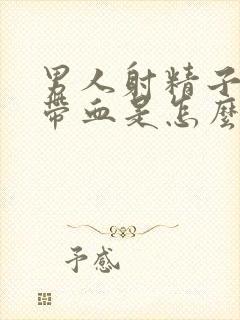 男人射精子
带血是怎麼
予感